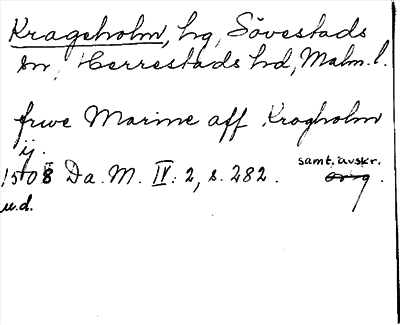 Krageholm, hg, Sövestads
sn, Herrestads hd, Malm. l.
frwe Marine aff Krogholm
ij.
1508 Da. M. IV: 2, s. 282. samt. avskr.
Orig.
u.d.